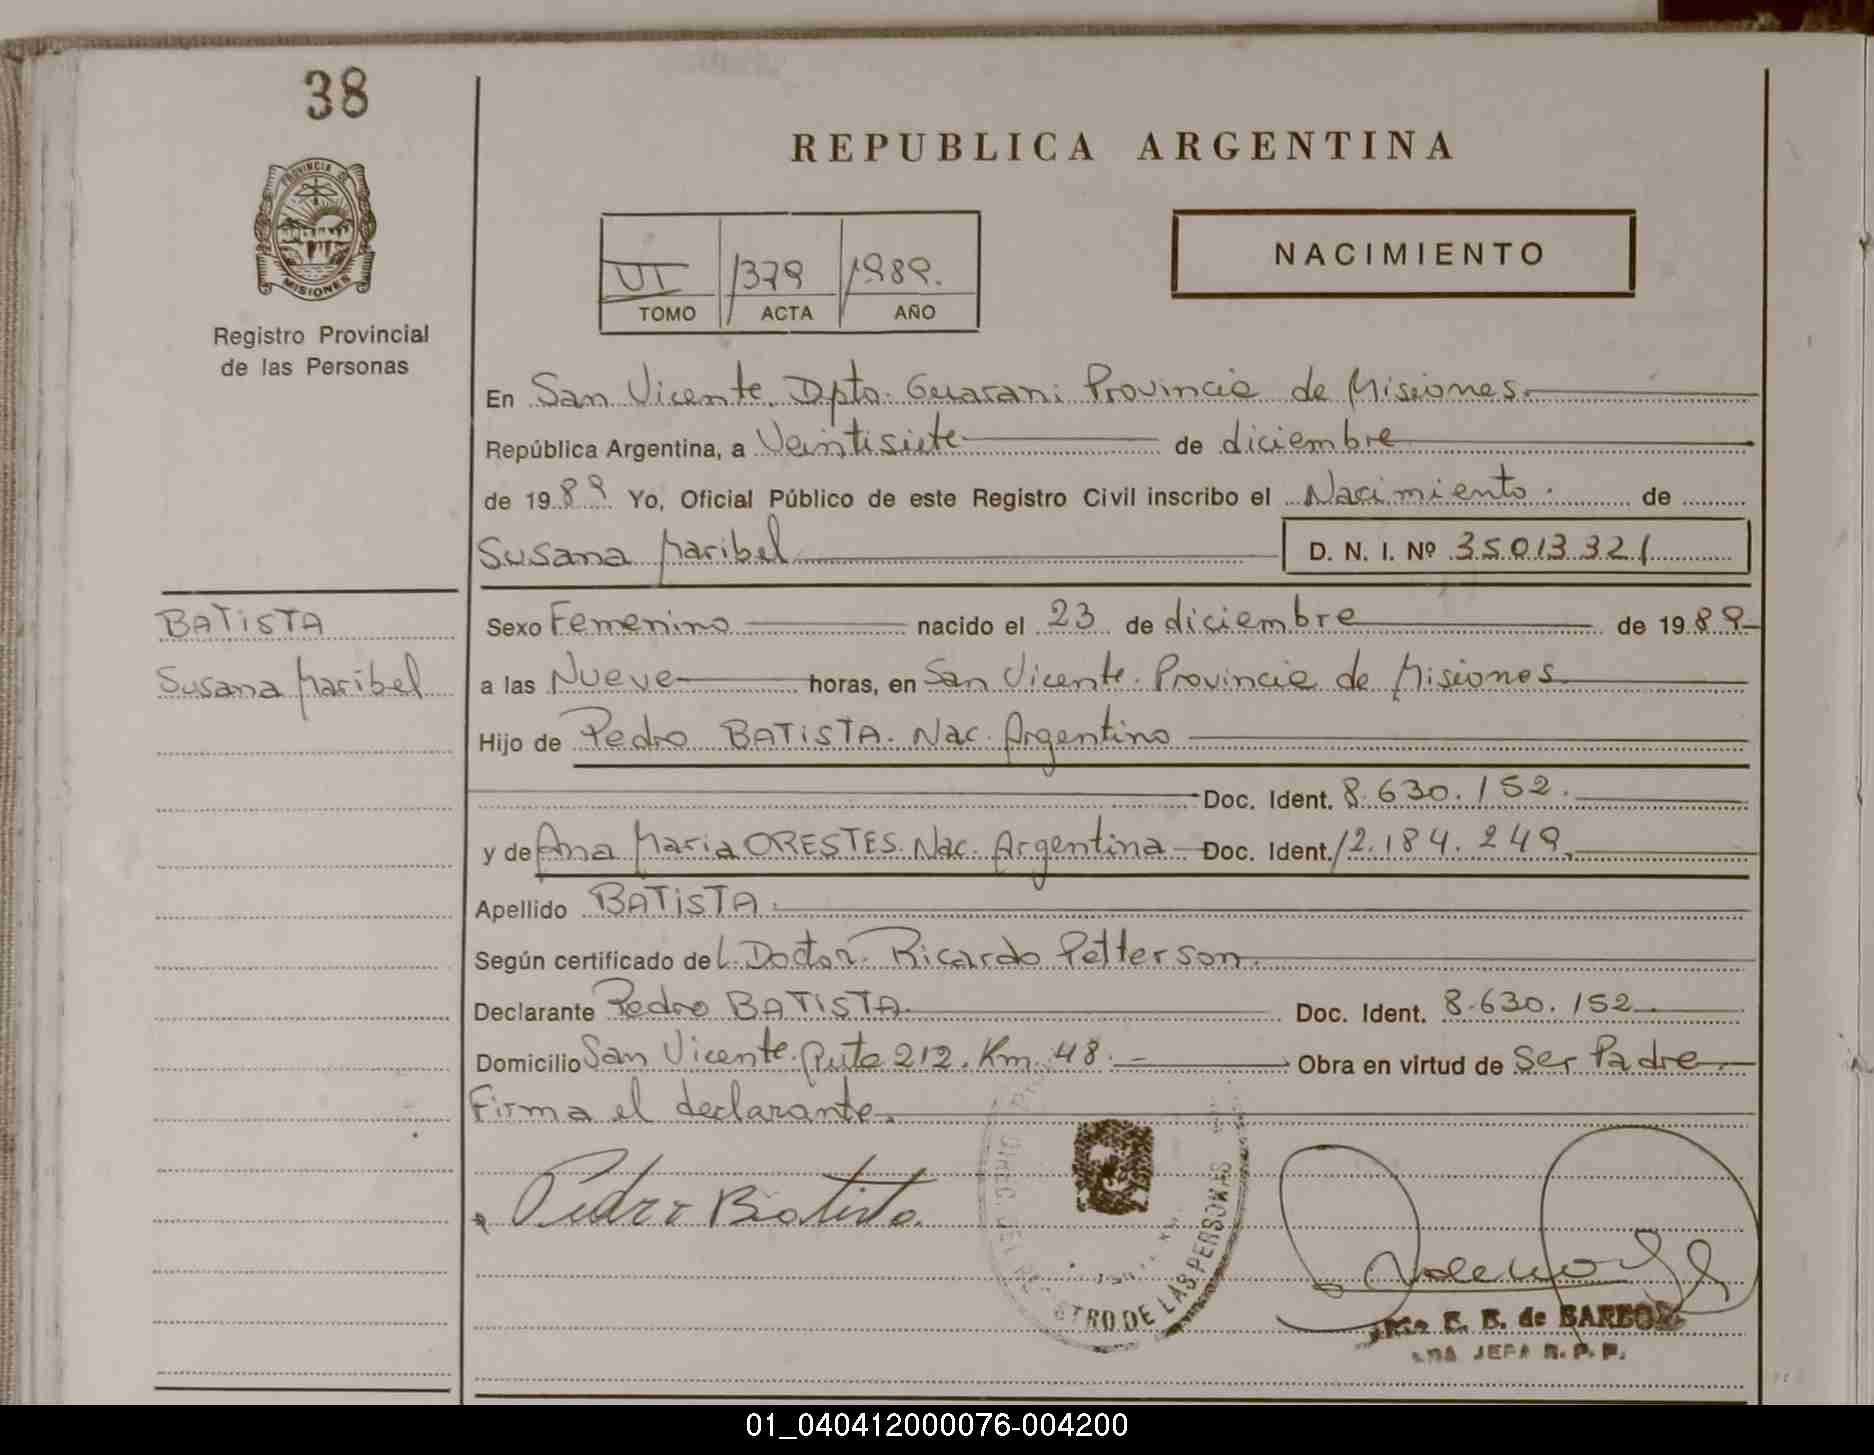 38
REPUBLICA ARGENTINA
PROVINCIA DE
MISIONES
Registro Provincial
de las Personas
NACIMIENTO
VI 1379 1989.
TOMO ACTA AÑO
En San Vicente. Dpto. Guarani Provincia de Misiones.
República Argentina, a Veintisiete de diciembre
de 1989 Yo, Oficial Público de este Registro Civil inscribo el Nacimiento. de
Susana Maribel D. N. I. Nº 35013321
BATISTA
Susana Maribel
Sexo Femenino nacido el 23 de diciembre de 1989
a las Nueve horas, en San Vicente. Provincia de Misiones
Hijo de Pedro BATISTA. Nac. Argentino
Doc. Ident. 8.630.152.
y de Ana Maria ORESTES. Nac. Argentina Doc. Ident. 12.184.249.
Apellido BATISTA.
Según certificado del Doctor. Ricardo Petterson.
Declarante Pedro BATISTA. Doc. Ident. 8.630.152
Domicilio San Vicente. Ruta 212. Km. 48. Obra en virtud de Ser Padre.
Firma el declarante.
Pedro Batista.
DE LAS PERSONAS
E. B. de
JEFA R.P.P.
01_040412000076-004200